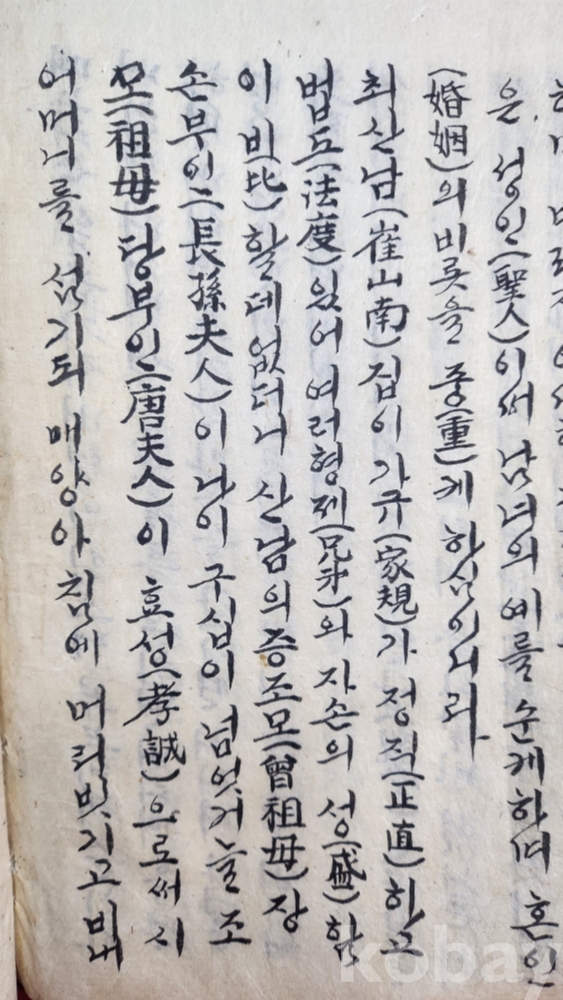 은 성인(聖人)이써 남녀의 예를 순케하며 혼인
(婚姻)의 비롯을 중(重)케 하심이니라
최산남(崔山南)집이 가규(家規)가 정직(正直)하고
법도(法度)있어 여러형제(兄弟)와 자손의 성(盛)함
이 비(比)할데 없더니 산남의증조모(曾祖母)장
손부인(長孫夫人)이 나이 구십이 넘엇거늘 조
모(祖母)당부인(唐夫人)이 효성(孝誠)으로써 시
어머니를 섬기되 매양아침에 머리빗기고 비내
kobay